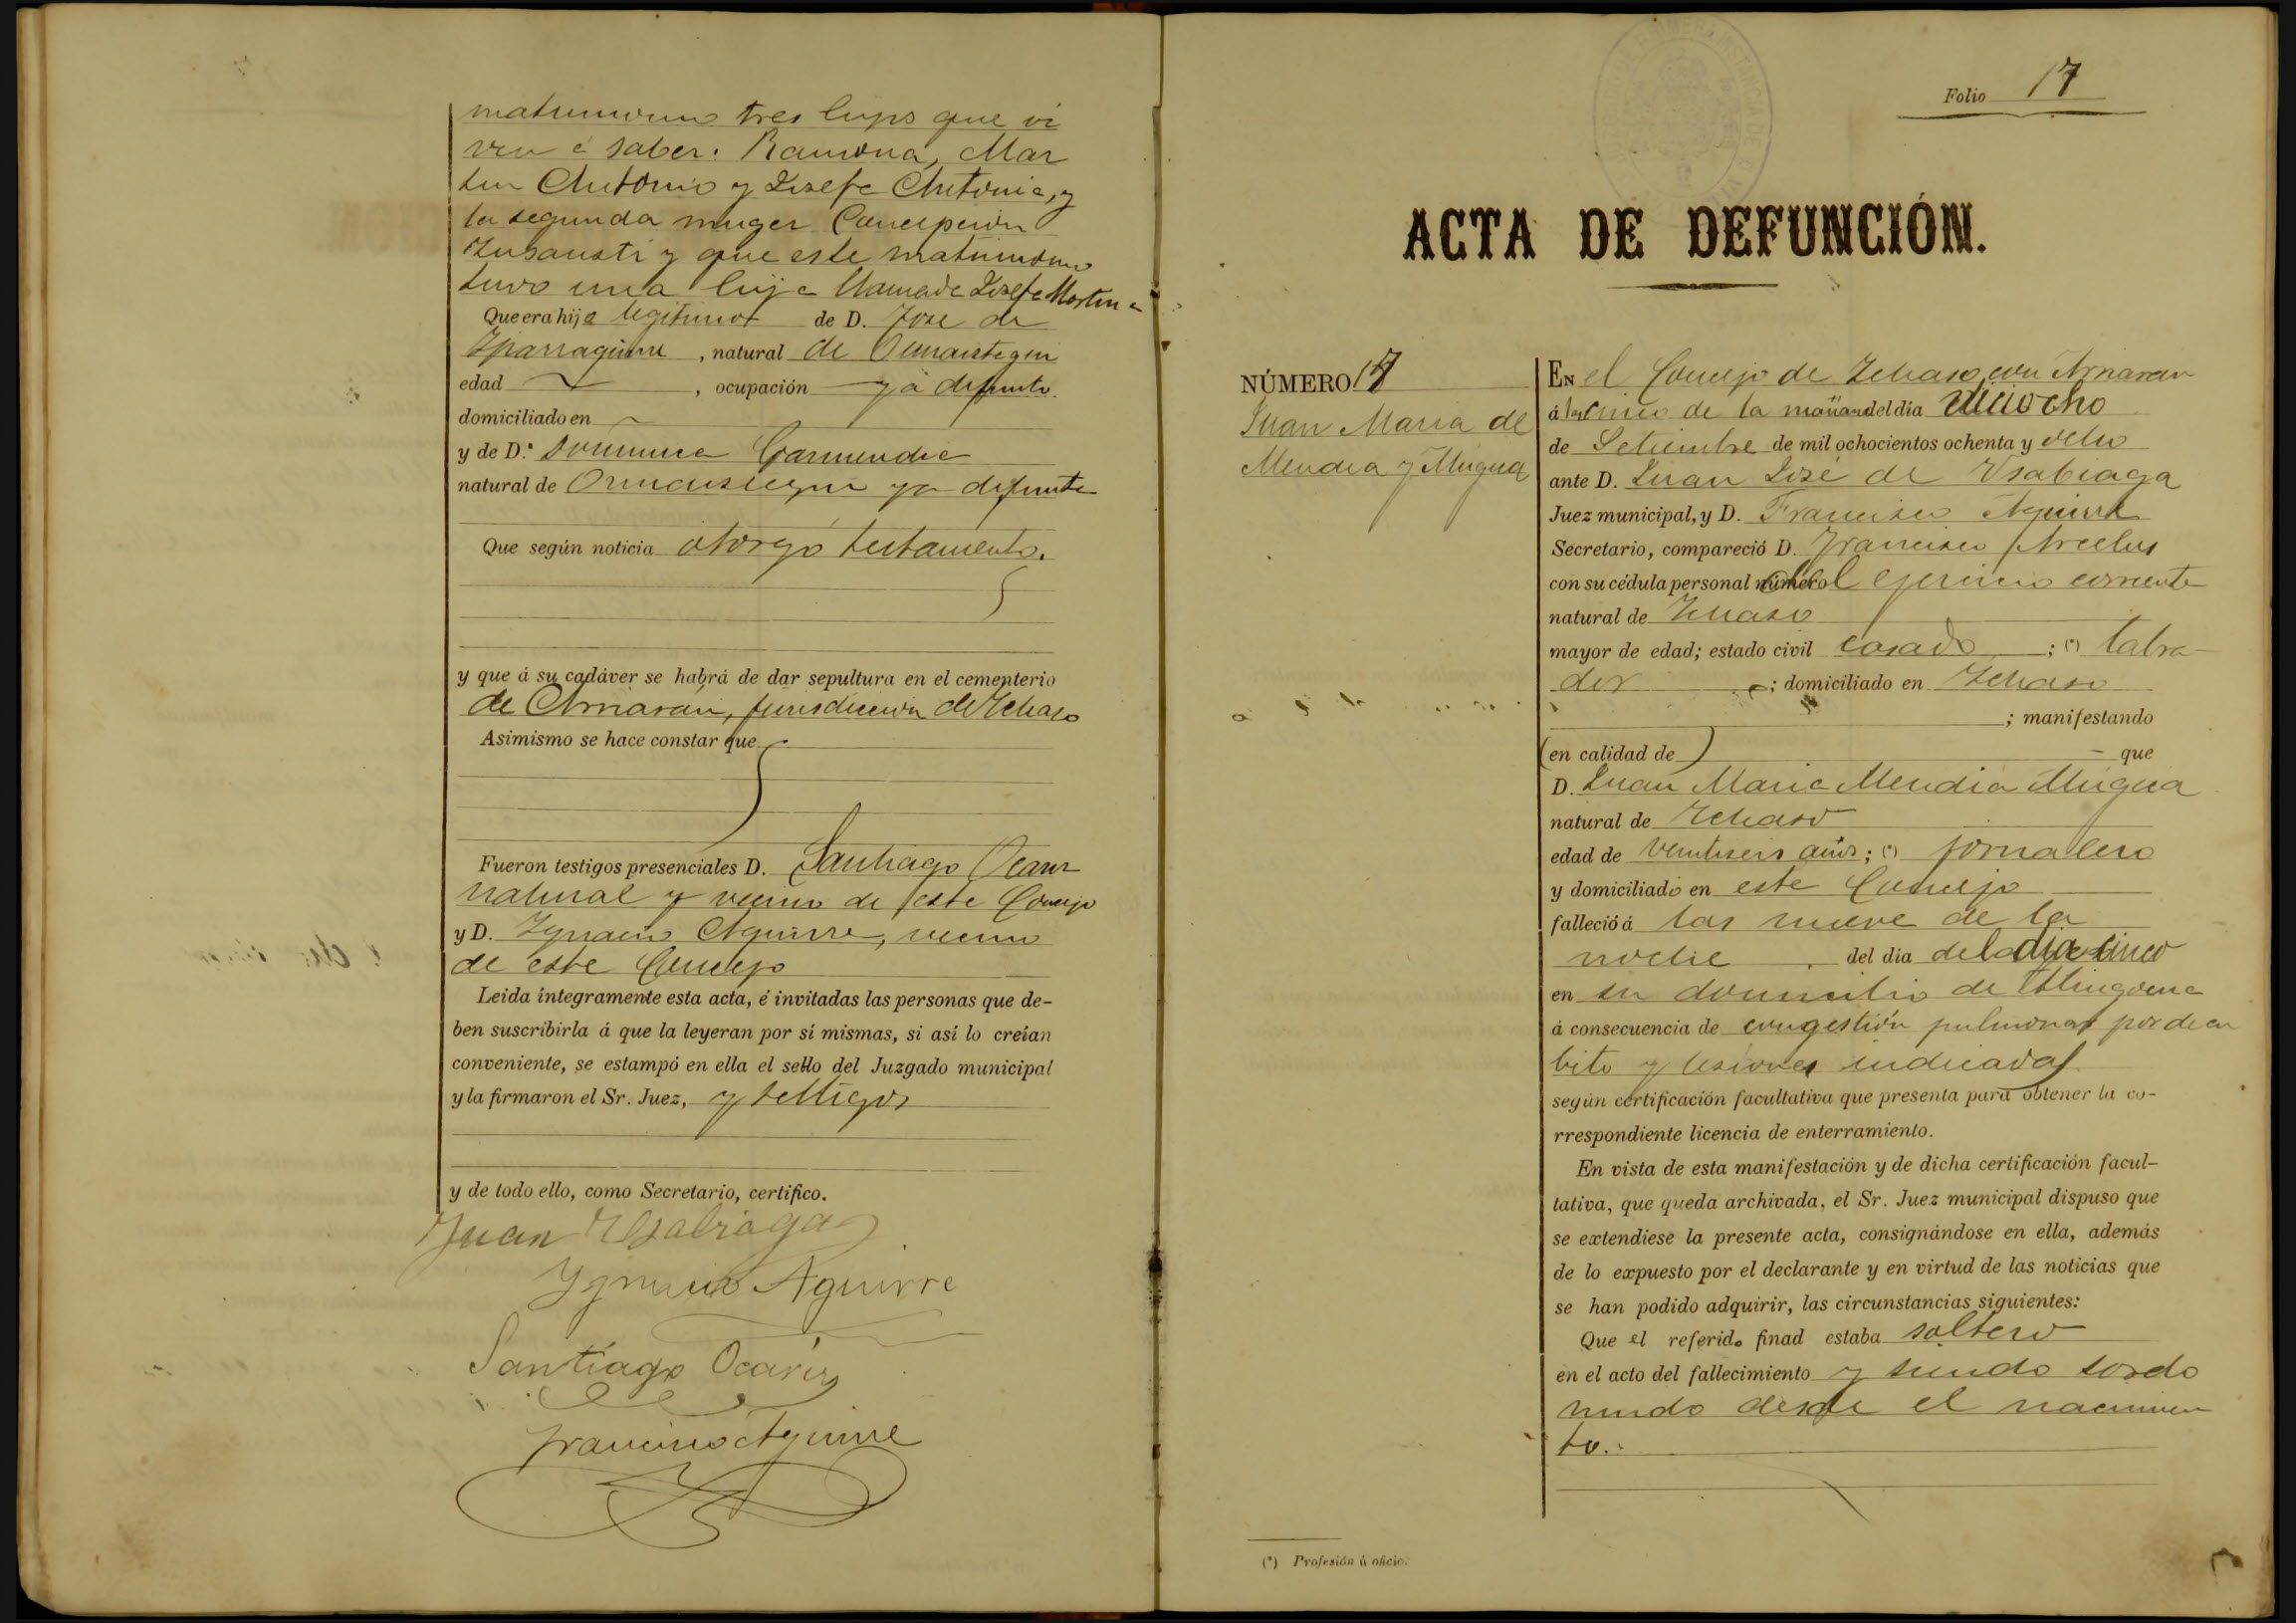 matrimonio tres hijos que vi
ven á saber. Ramona, Mar
tin Antonio y Josefa Antonia, y
la segunda muger Concepción
y que este matrimonio
tuvo una hija llamada Josefa Martina
Que era hijo legitimo de D. Jose de
Yparraguirre, natural de Ormaistegui
edad , ocupación ya difunto
domiciliado en
y de D.ª Garmendia
natural de Ormaistegui ya difunta
Que según noticia otorgó testamento.
y que á su cadáver se habrá de dar sepultura en el cementerio
de Arriaran, jurisdiccion de Ichaso
Asimismo se hace constar que
Fueron testigos presenciales D. Santiago Ocariz
natural y vecino de este Concejo
y D. Ygnacio Aguirre, vecino
de este Concejo
Leida íntegramente esta acta, é invitadas las personas que de-
ben suscribirla á que la leyeran por sí mismas, si así lo creían
conveniente, se estampó en ella el sello del Juzgado municipal
y la firmaron el Sr. Juez, y testigos
y de todo ello, como Secretario, certifico.
Juan Usabiaga
Ygnacio Aguirre
Santiago Ocariz
Francisco Aguirre
Folio 17
ACTA DE DEFUNCIÓN.
NÚMERO 17
Juan Maria de
Mendia y Mugica
EN el Concejo de Ichaso con Arriaran
á las cinco de la mañana del dia
de Setiembre de mil ochocientos ochenta y ocho
ante D. Juan José de Usabiaga
Juez municipal, y D. Francisco Aguirre
Secretario, compareció D. Francisco Arcelus
con su cédula personal número del ejercicio corriente
natural de Ichaso
mayor de edad; estado civil casado ; (*) labra
dor ; domiciliado en Ichaso
; manifestando
(en calidad de) que
D. Juan Maria Mendia Mugica
natural de Ichaso
edad de veintiseis años; (*) jornalero
y domiciliado en este Concejo
falleció á las nueve de la
noche del dia cinco
en su domicilio de
á consecuencia de congestión pulmonar por decu
bito y lesiones indicadas
según certificación facultativa que presenta para obtener la co-
rrespondiente licencia de enterramiento.
En vista de esta manifestación y de dicha certificación facul-
tativa, que queda archivada, el Sr. Juez municipal dispuso que
se extendiese la presente acta, consignándose en ella, además
de lo expuesto por el declarante y en virtud de las noticias que
se han podido adquirir, las circunstancias siguientes:
Que el referido finad estaba soltero
en el acto del fallecimiento y siendo sordo
mudo desde el nacimien
to.
(*) Profesión ú oficio.